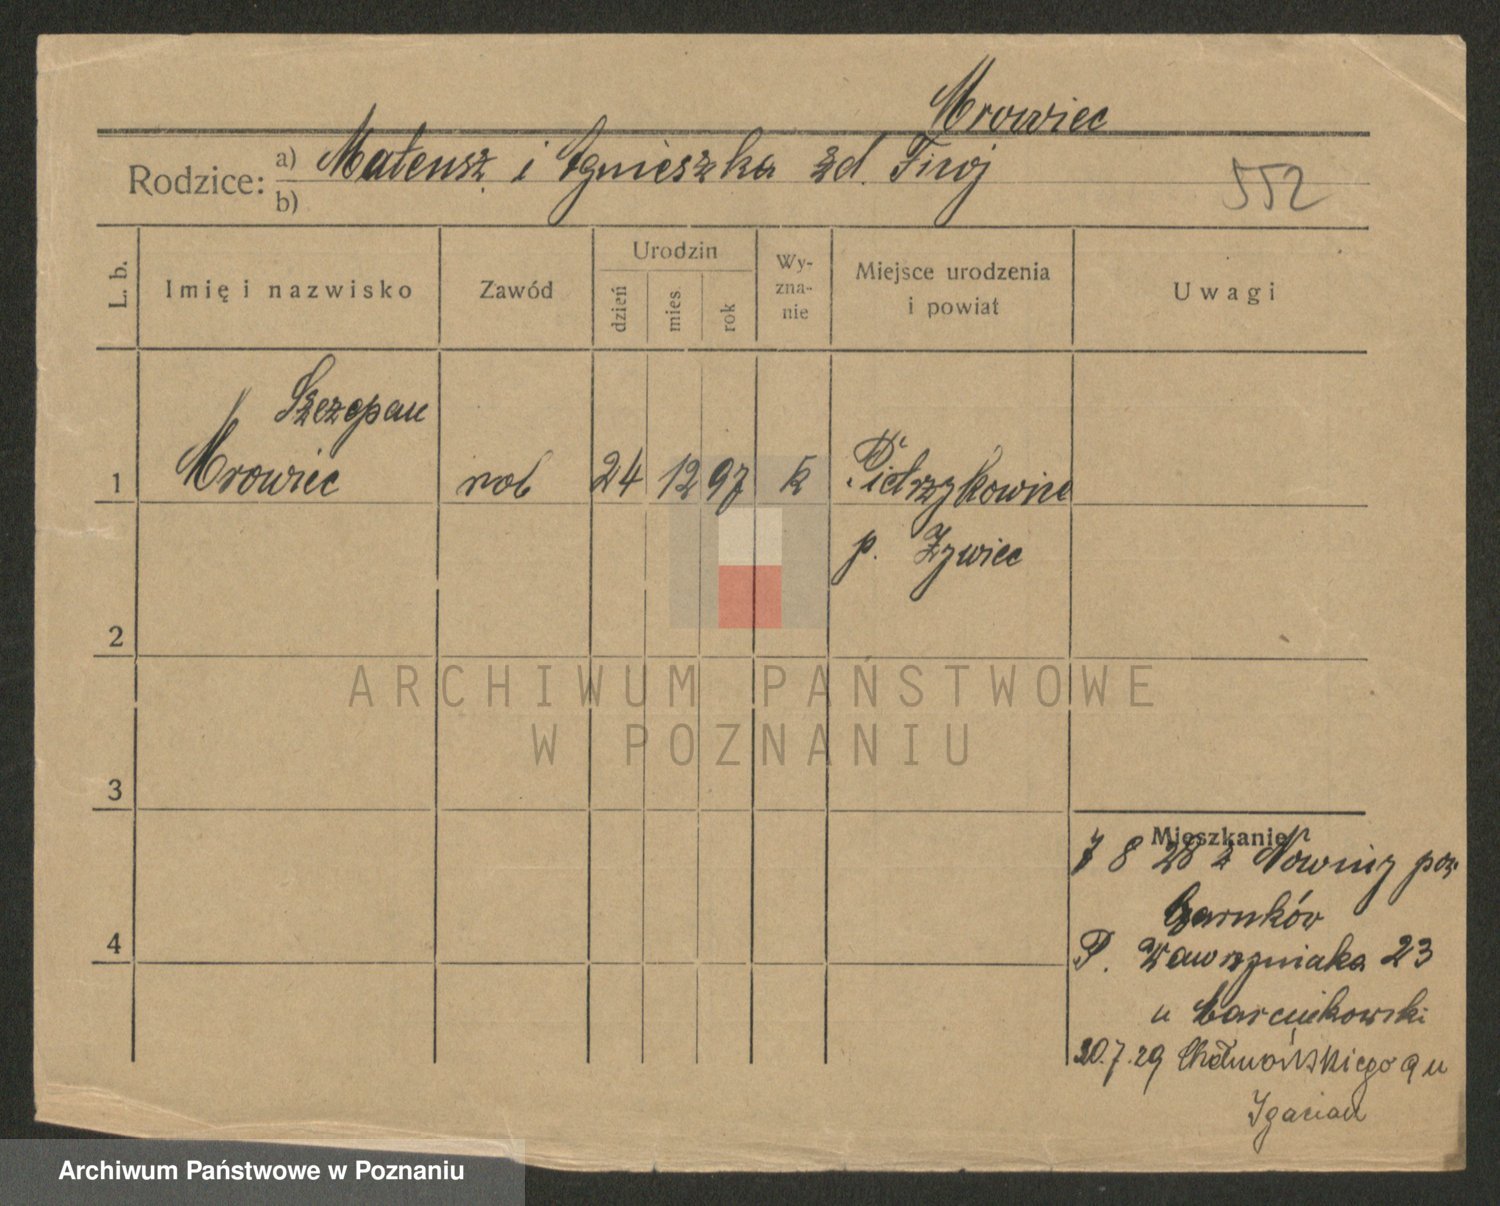 Mrowiec
Rodzice: a) Mateusz i Agnieszka zd. Firoj
b)
552
L. b.
Imię i nazwisko
Zawód
Urodzin
dzień
mies.
rok
Wy-
zna-
nie
Miejsce urodzenia
i powiat
Uwagi
Szczepan
1 Mrowiec rob 24 12 97 k Pietrzykowice
p. Zywiec
2
3
4
Mieszkanie
7 8 28 z Nowiny pow.
Czarnków
P. Wawrzyniaka 23
u Marcinkowski
30.7.29 Chełmońskiego 9 u
ARCHIWUM PAŃSTWOWE
W POZNANIU
Archiwum Państwowe w Poznaniu